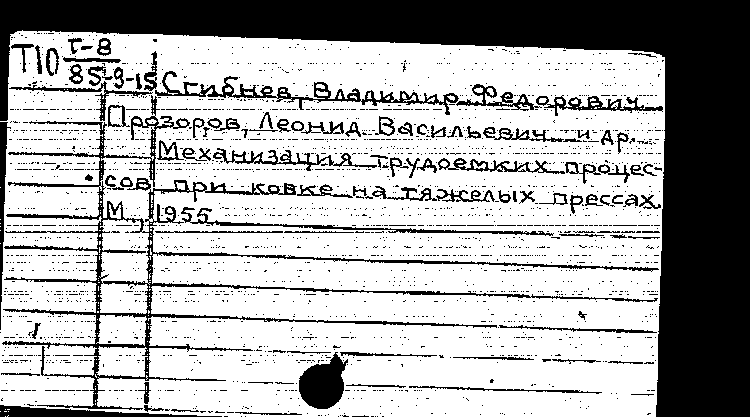 Т10 Т-8
85-9-15 Сгибнев, Владимир Федорович
Прозоров, Леонид Васильевич и др.
Механизация трудоемких процес-
сов при ковке на тяжелых прессах
М., 1955